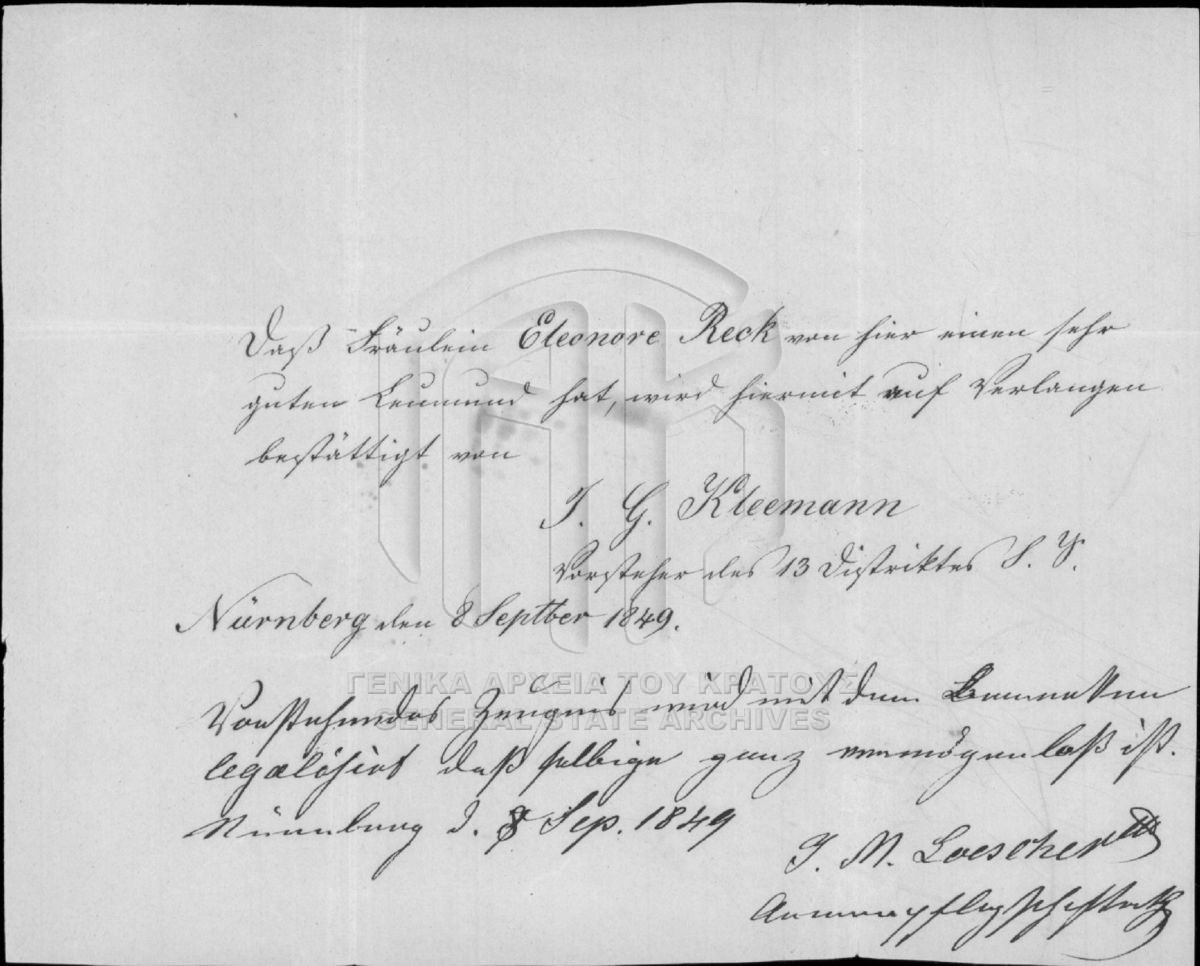 Daß Fräulein Eleonore Reck von hier einen sehr
guten Leumund hat, wird hiermit auf Verlangen
bestättigt von
J. G. Kleemann
Vorsteher des 13 Distriktes S. S.
Nürnberg den 8 Septber 1849.
ΓΕΝΙΚΑ ΑΡΧΕΙΑ ΤΟΥ ΚΡΑΤΟΥΣ
GENERAL STATE ARCHIVES
Vorstehendes Zeugnis wird mit dem Bemerken
legalisirt daß selbige ganz vermögenloß ist.
Nürnberg d. 8 Sep. 1849
J. M. Loescher
Armenpflegschaftsrath